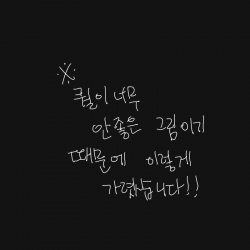 ※
퀄이 너무
안좋은 그림이기
때문에 이렇게
가렸습니다!!